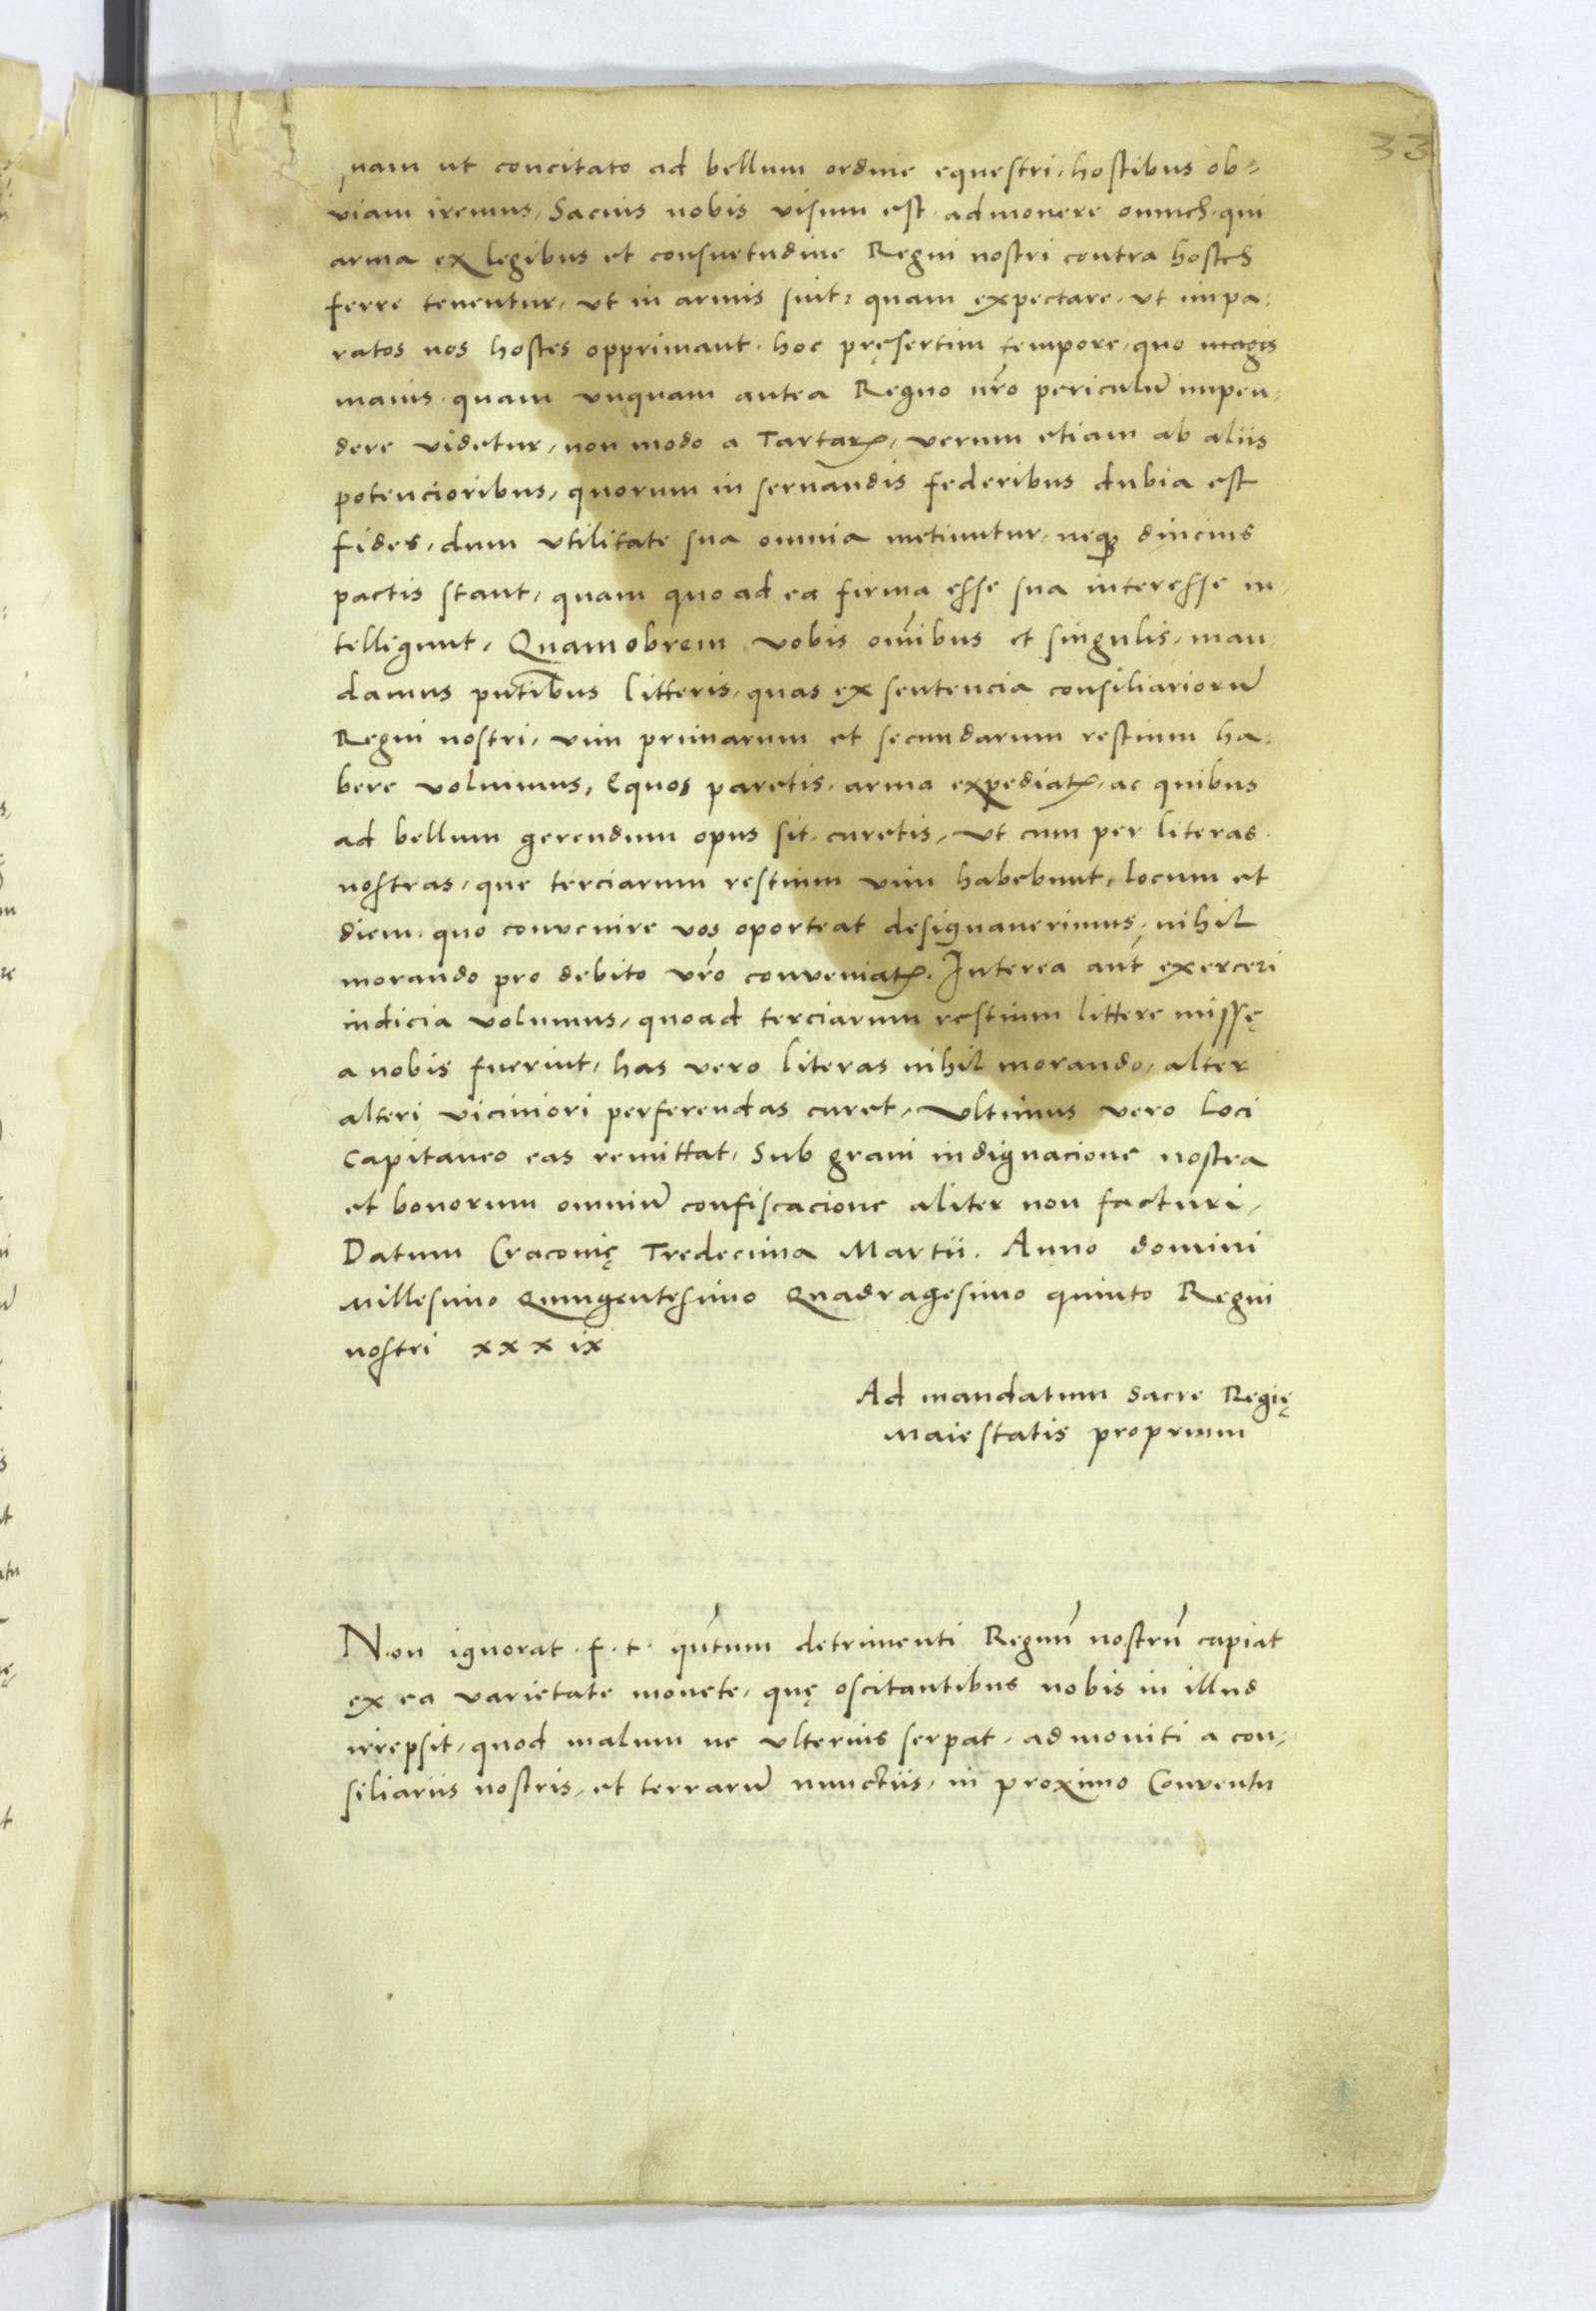 33
nam ut concitato ad bellum ordine equestri, hostibus ob-
viam iremus, Sacius nobis visum est admonere omnes, qui
arma ex legibus et consuetudine Regni nostri contra hostes
ferre tenentur, ut in armis sint, quam expectare, ut impa-
ratos nos hostes opprimant. hoc pręsertim tempore, quo magis
maius quam unquam antea Regno nr̃o periculū impen-
dere videtur, non modo a Tartaꝝ, verum etiam ab aliis
potencioribus, quorum in servandis federibus dubia est
fides, dum utilitate sua omnia metiuntur, neqȝ diucius
pactis stant, quam quoad ea firma esse sua interesse in-
telligunt, Quamobrem vobis om̃ibus et singulis, man-
damus pn̄tibus litteris, quas ex sentencia consiliariorū
Regni nostri, vim primarum et secundarum restium ha-
bere volumus, Equos paretis, arma expediatꝭ, ac quibus
ad bellum gerendum opus sit curetis, Ut cum per literas
nostras, que terciarum restium vim habebunt, locum et
diem, quo convenire vos oporteat designaverimus, nihil
morando pro debito vr̃o conveniatꝭ. Interea aut̃ exerceri
iudicia volumus, quoad terciarum restium littere missę
a nobis fuerint, has vero literas nihil morando, alter
alteri viciniori perferendas curet, Ultimus vero Loci
Capitaneo eas remittat, Sub gravi indignacione nostra
et bonorum omniū confiscacione aliter non facturi,
Datum Cracovię Tredecima Martii. Anno domini
Millesimo Quingentesimo Quadragesimo quinto Regni
nostri xxxix
Ad mandatum Sacre Regię
Maiestatis proprium
Non ignorat f. t. quñtum detrimenti Regnū nostrū capiat
ex ea varietate monete, quę oscitantibus nobis in illud
irrepsit, quod malum ne ulterius serpat, admoniti a con-
siliariis nostris, et terrarū nunctiis, in proximo Conventu